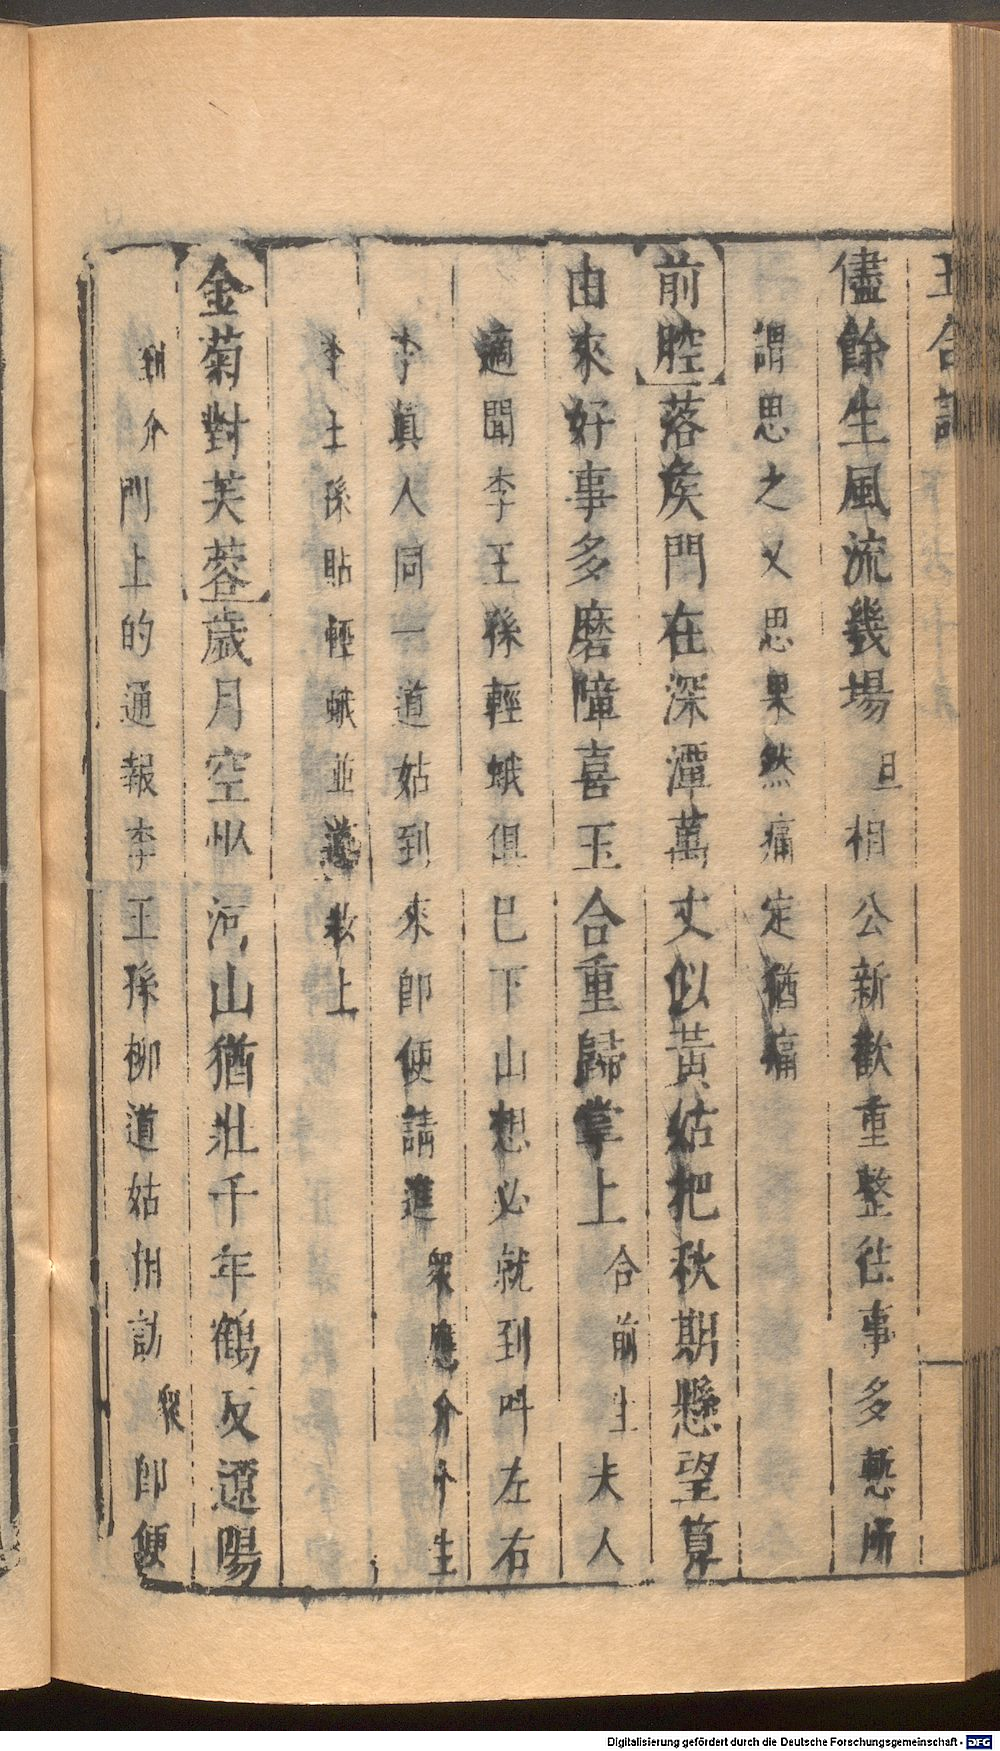 玉合記
儘餘生風流幾場旦相公新歡重整往事多慙所
謂思之又思果然痛定猶痛
前腔落矦門在深潭萬丈似黃姑把秋期懸望算
由來好事多磨障喜玉合重歸掌上合前生夫人
適聞李王孫輕娥俱已下山想必就到呌左右
李眞人同一道姑到來卽便請進衆應介外生
李王孫貼輕蛾並道粧上
金菊對芙蓉歲月空 河山猶壯千年鶴反遼陽
到介門上的通報李王孫柳道姑相訪衆卽便
Digitalisierung gefördert durch die Deutsche Forschungsgemeinschaft - DFG